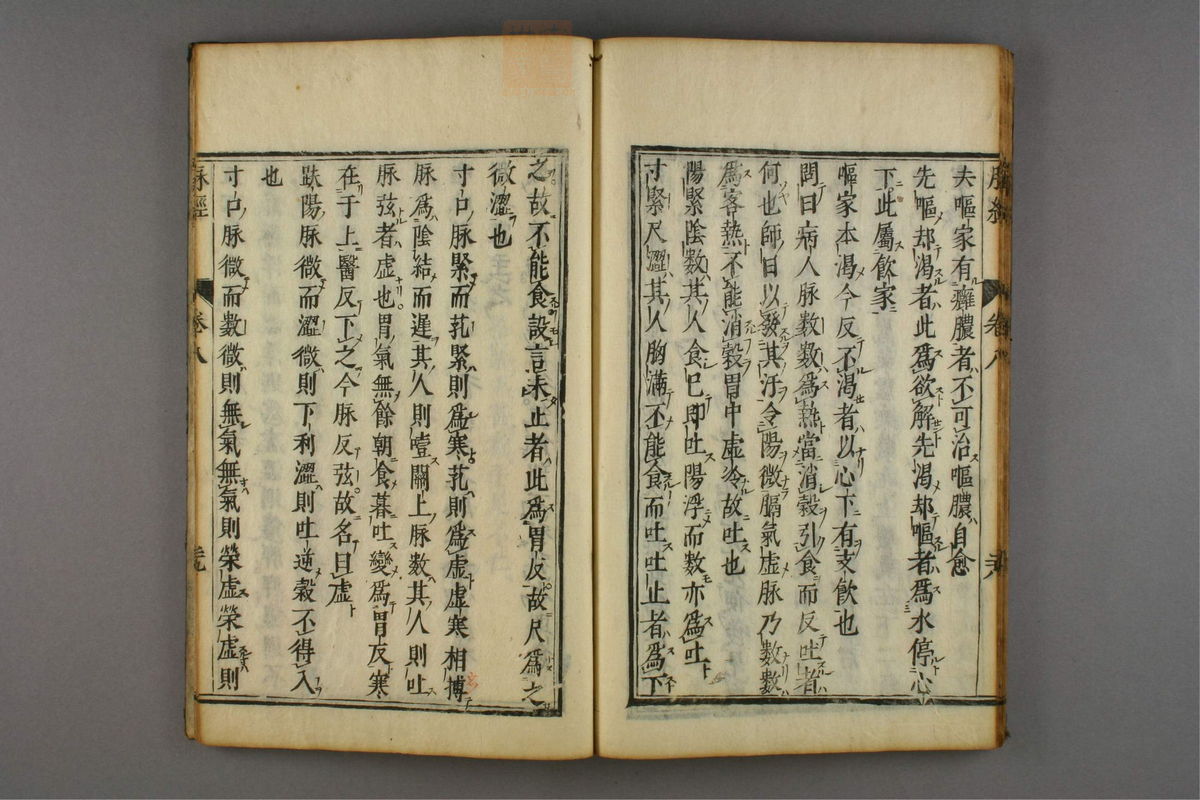 夫嘔家有癰膿者不可治嘔膿自愈
先嘔却渴者此爲欲解先渴却嘔者爲水停心
下此屬飲家
嘔家本渴今反不渴者以心下有支飲也
問曰病人脉數數爲熱當消穀引食而反吐者
何也師曰以發其汗令陽微膈氣虛脉乃數數
爲客熱不能消穀胃中虛冷故吐也
陽緊陰數其人食已即吐陽浮而數亦爲吐
寸緊尺澀其人胸滿不能食而吐吐止者爲下
之故不能食設言未止者此爲胃反故尺爲之
微澀也
寸口脉緊而芤緊則爲寒芤則爲虛虛寒相搏
脉爲陰結而遲其人則噎關上脉數其人則吐
脉弦者虛也胃氣無餘朝食暮吐變爲胃反寒
在于上醫反下之今脉反弦故名曰虛
趺陽脉微而澀微則下利澀則吐逆穀不得入
也
寸口脉微而數微則無氣無氣則榮虛榮虛則
脉經
卷八